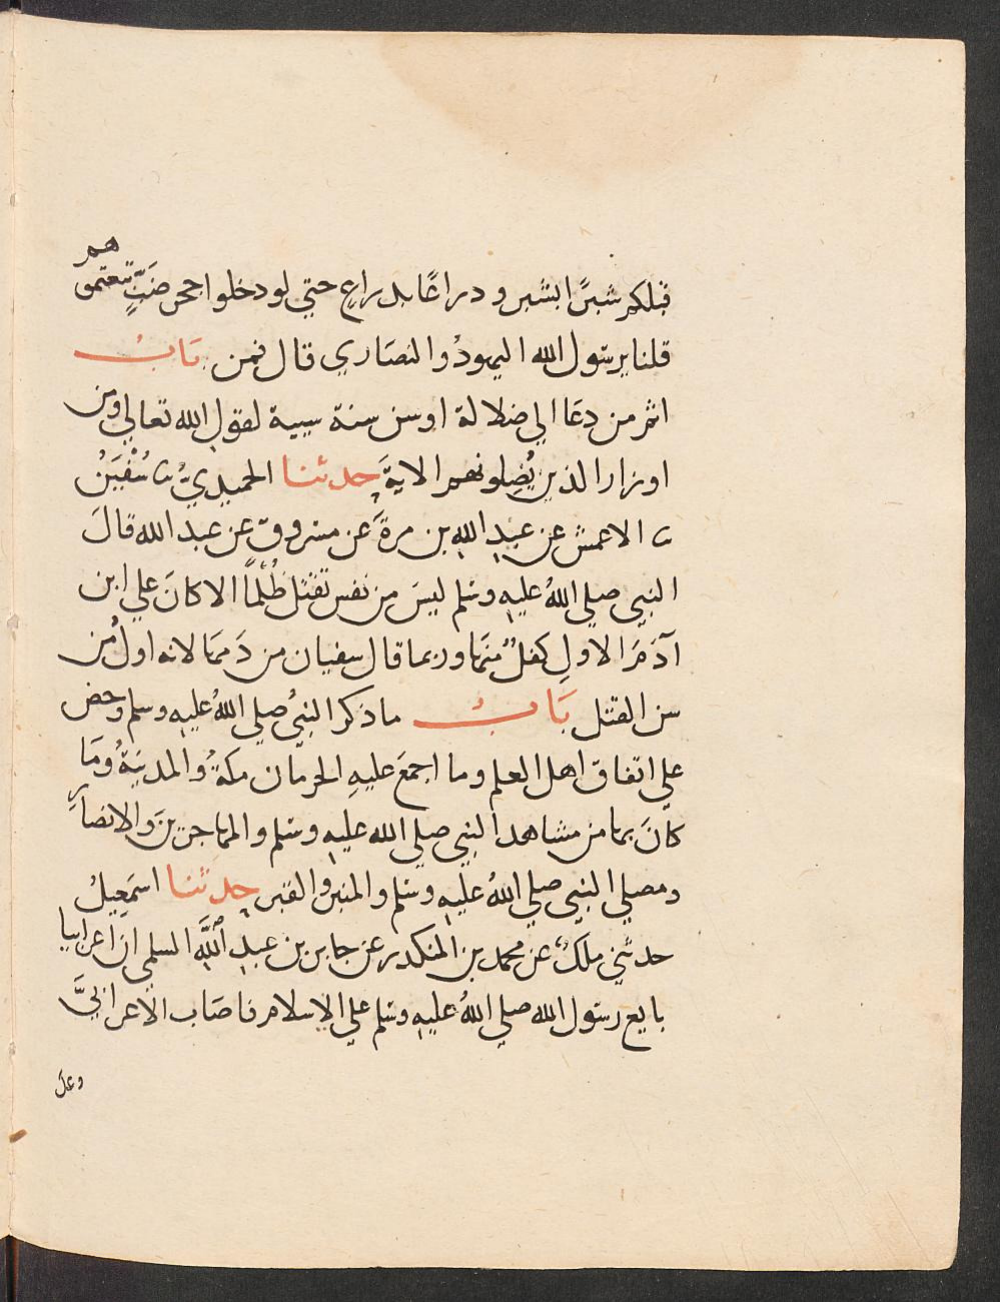 قبلكم شبرًا بشبر و دراعًا بدراع حتي لو دخلوا جحر ضَبٍّ تبعتموهم
قلنا يرسول الله اليهودُ والنصَاري قال فمن بَابُ
اثم من دعَا الي ضلالة او سن سنة سيية لقول الله تعالي ومن
اوزار الذين يُضِلونهم الايةَ حدثنا الحميديُّ ثنا سُفْيَنُ
ثنا الاعمش عن عبدِ اللهِ بن مرةَ عن مسروق عن عبد الله قالَ
النبي صلي اللهُ عليهِ وسَلم ليسَ من نفس تقتل ظُلْمًا الا كانَ علي ابن
آدَمَ الاولِ كفلٌ منهَا وربما قال سفيان من دَمهَا لانه اول من
سن القتل بَابُ ما ذكر النبيُ صلي اللهُ عليهِ وسلم وحض
علي اتفاق اهل العلم وما اجمعَ عليهِ الحرمان مكةُ والمدينةُ ومَا
كانَ بها من مشاهد النبي صلي الله عليهِ وسَلم والمهاجرينَ والانصَارِ
ومصلي النبي صلي اللهُ عليهِ وسَلم والمنبر والقبر حدثنا اسمَعِيلُ
حدثني ملكٌ عن محمد بن المنكدر عن جابر بن عبدِ اللَّهِ السلمي ان اعرابيا
بايع رسَول الله صلي اللهُ عليهِ وسَلم علي الاسلام فاصَاب الاعرابيَّ
وعك